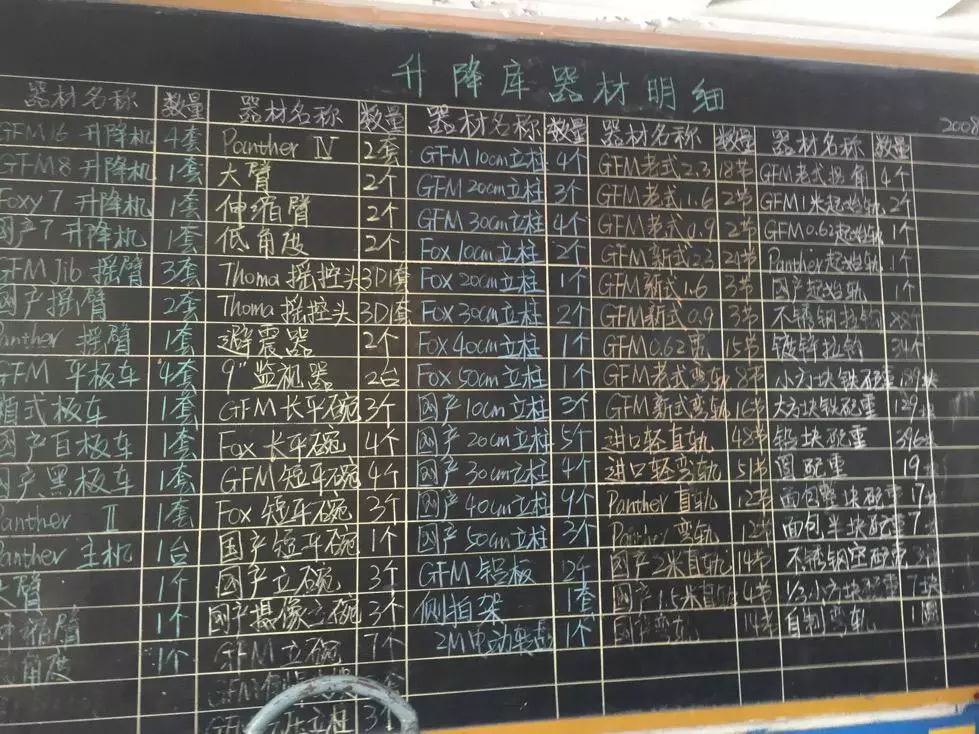 升降库器材明细
2003
器材名称 数量 器材名称 数量 器材名称 数量 器材名称 数量 器材名称 数量
GFM16 升降机 4套 Panther Ⅳ 2套 GFM 10cm立柱 4个 GFM老式2.3 18节 GFM老式拐角 4个
GFM8 升降机 1套 大臂 2个 GFM 20cm立柱 3个 GFM老式1.6 2节 GFM1米起始轨 2个
Foxy 7 升降机 1套 伸缩臂 2个 GFM 30cm立柱 4个 GFM老式0.9 2节 GFM0.62起始轨 1个
国产7升降机 1套 低角度 2个 Fox 10cm立柱 2个 GFM新式2.3 24节 Panther起始轨 1个
GFM Jib 摇臂 3套 Thoma摇控头 3D1套 Fox 20cm立柱 1个 GFM新式1.6 3节 国产起始轨 1个
国产摇臂 2套 Thoma摇控头 3D1套 Fox 30cm立柱 2个 GFM新式0.9 3节 不锈钢拉钩
Panther 摇臂 1套 避震器 2个 Fox 40cm立柱 1个 GFM0.62 15节 镀锌拉钩 34个
GFM 平板车 4套 9"监视器 2台 Fox 50cm立柱 1个 GFM老式弯轨 8节 小方块铁配重
箱式板车 1套 GFM长平碗 3个 国产10cm立柱 3个 GFM新式弯轨 16节 大方块铁配重 129块
国产白板车 1套 Fox 长平碗 4个 国产20cm立柱 5个 进口轻直轨 48节 铅块配重 396块
国产黑板车 1套 GFM短平碗 4个 国产30cm立柱 4个 进口轻弯轨 51节 圆配重 19块
Panther Ⅱ 1套 Fox短平碗 3个 国产40cm立柱 9个 Panther直轨 12节 面包整块配重 17块
Panther 主机 1台 国产短平碗 1个 国产50cm立柱 3个 Panther弯轨 12节 面包半块配重 7块
大臂 1个 国产立碗 3个 GFM铝板 12个 国产2米直轨 14节 不锈钢空配重
伸缩臂 1个 国产摄像立碗 3个 侧拍架 1套 国产1.5米直轨 4节 1/3小方块配重 7块
低角度 1个 GFM立碗 7个 2M电动转盘 1个 国产弯轨 14节 自制弯轨 1圆
GFM
立柱 3个